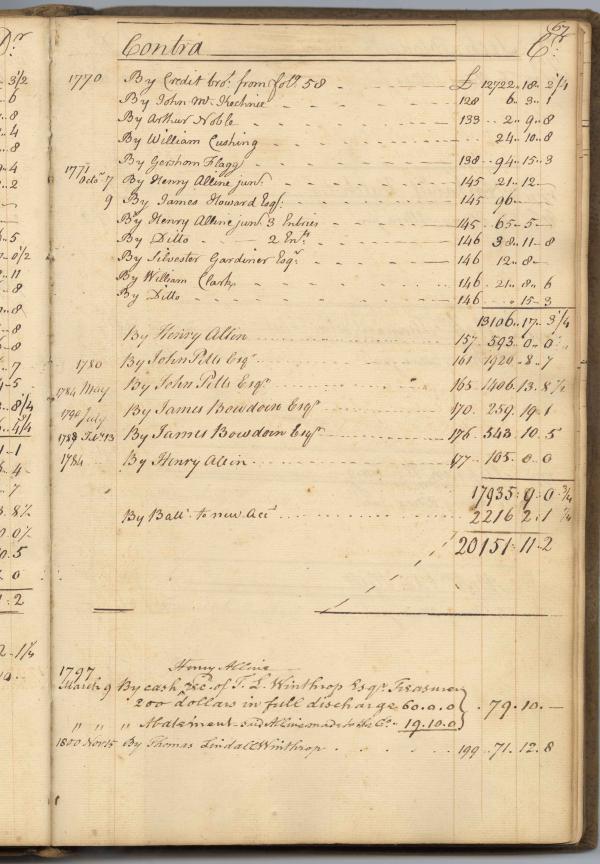 67
Contra Cr.
1770 By Credit bro.t from fol.o 58 - - £ 12722.. 18.. 2 1/4
By John Mc Kechnie - - - 128 6.. 3.. 1
By Arthur Noble - - - 133 2.. 9.. 8
By William Cushing - - - 24.. 10.. 8
By Gershom Flagg - - - 138 - 94.. 15.. 3
1771 Octo.r 7 By Henry Alline jun.r - - - 145 21.. 12..
9 By James Howard Esq.r - - - 145 96..
By Henry Alline jun.r 3 Entries - - - 145.. 65.. 5..
By Ditto - - - 2 En.ts - - 146 38.. 11.. 8
By Silvester Gardiner Esq.r - - - 146 12.. 8..
By William Clark - - - 146.. 21.. 8.. 6
By Ditto - - - 146 .. 15.. 3
13106.. 17.. 3 1/4
By Henry Allin - - - 157.. 593.. 0.. 0
1780 By John Pitts Esq.r - - - 161 1920.. 8.. 7
1784 May By John Pitts Esq.r - - - 165 1406. 13. 8 1/2
1790 July By James Bowdoin Esq.r - - - 170. 259. 19. 1
1789 Feb.y 13 By James Bowdoin Esq.r - - - 176. 543. 10. 5
1784 By Henry Allin - - - 177.. 105. 0. 0
17935. 9. 0 3/4
By Ball.e to new Acc.t - - - 2216. 2. 1 1/4
20151. 11. 2
Henry Alline
1797 March 9 By cash rec.d of T. L. Winthrop Esq.r Treasurer
200 dollars in full discharge 60. 0. 0 } . 79. 10. —
" " " " Abatement said Alline made to the Co.. 19. 10. 0
1800 Nov 15 By Thomas Lindall Winthrop . . . . 199.. 71. 12. 8